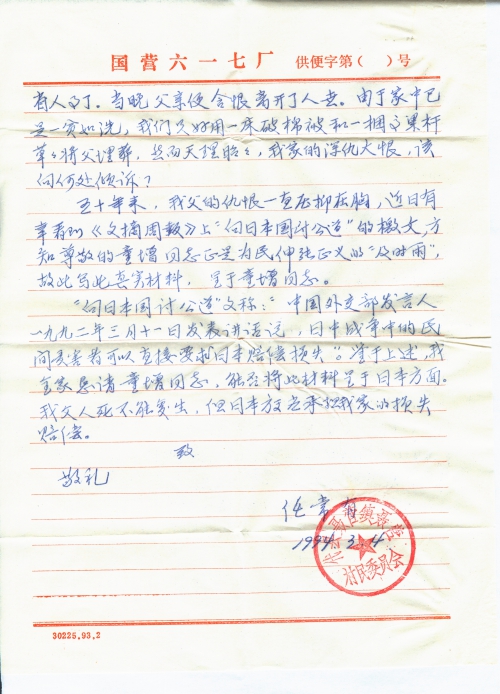 国营六一七厂 供便字第( )号
有人了。当晚父亲便含恨离开了人去。由于家中已
是一贫如洗，我们只好用一床破棉被和一捆高果杆
草草将父埋葬，然而天理昭昭，我家的深仇大恨，该
向何处倾诉？
五十年来，我父的仇恨一直压抑在胸，近日有
幸看到《文摘周报》上"向日本国讨公道"的檄文，方
知尊敬的童增同志正是为民伸张正义的"及时雨"，
故此写此真实材料，呈于童增同志。
"向日本国讨公道"文称："中国外交部发言人
一九九二年三月十一日发表讲话说，日中战争中的民
间受害者可以直接要求日本赔偿损失"。鉴于上述，我
全家恳请童增同志，能否将此材料呈于日本方面。
我父人死不能复生，但日本应承担我家的损失
赔偿。
致
敬礼
任常
1994.3.4
村民委员会
30226.93.2